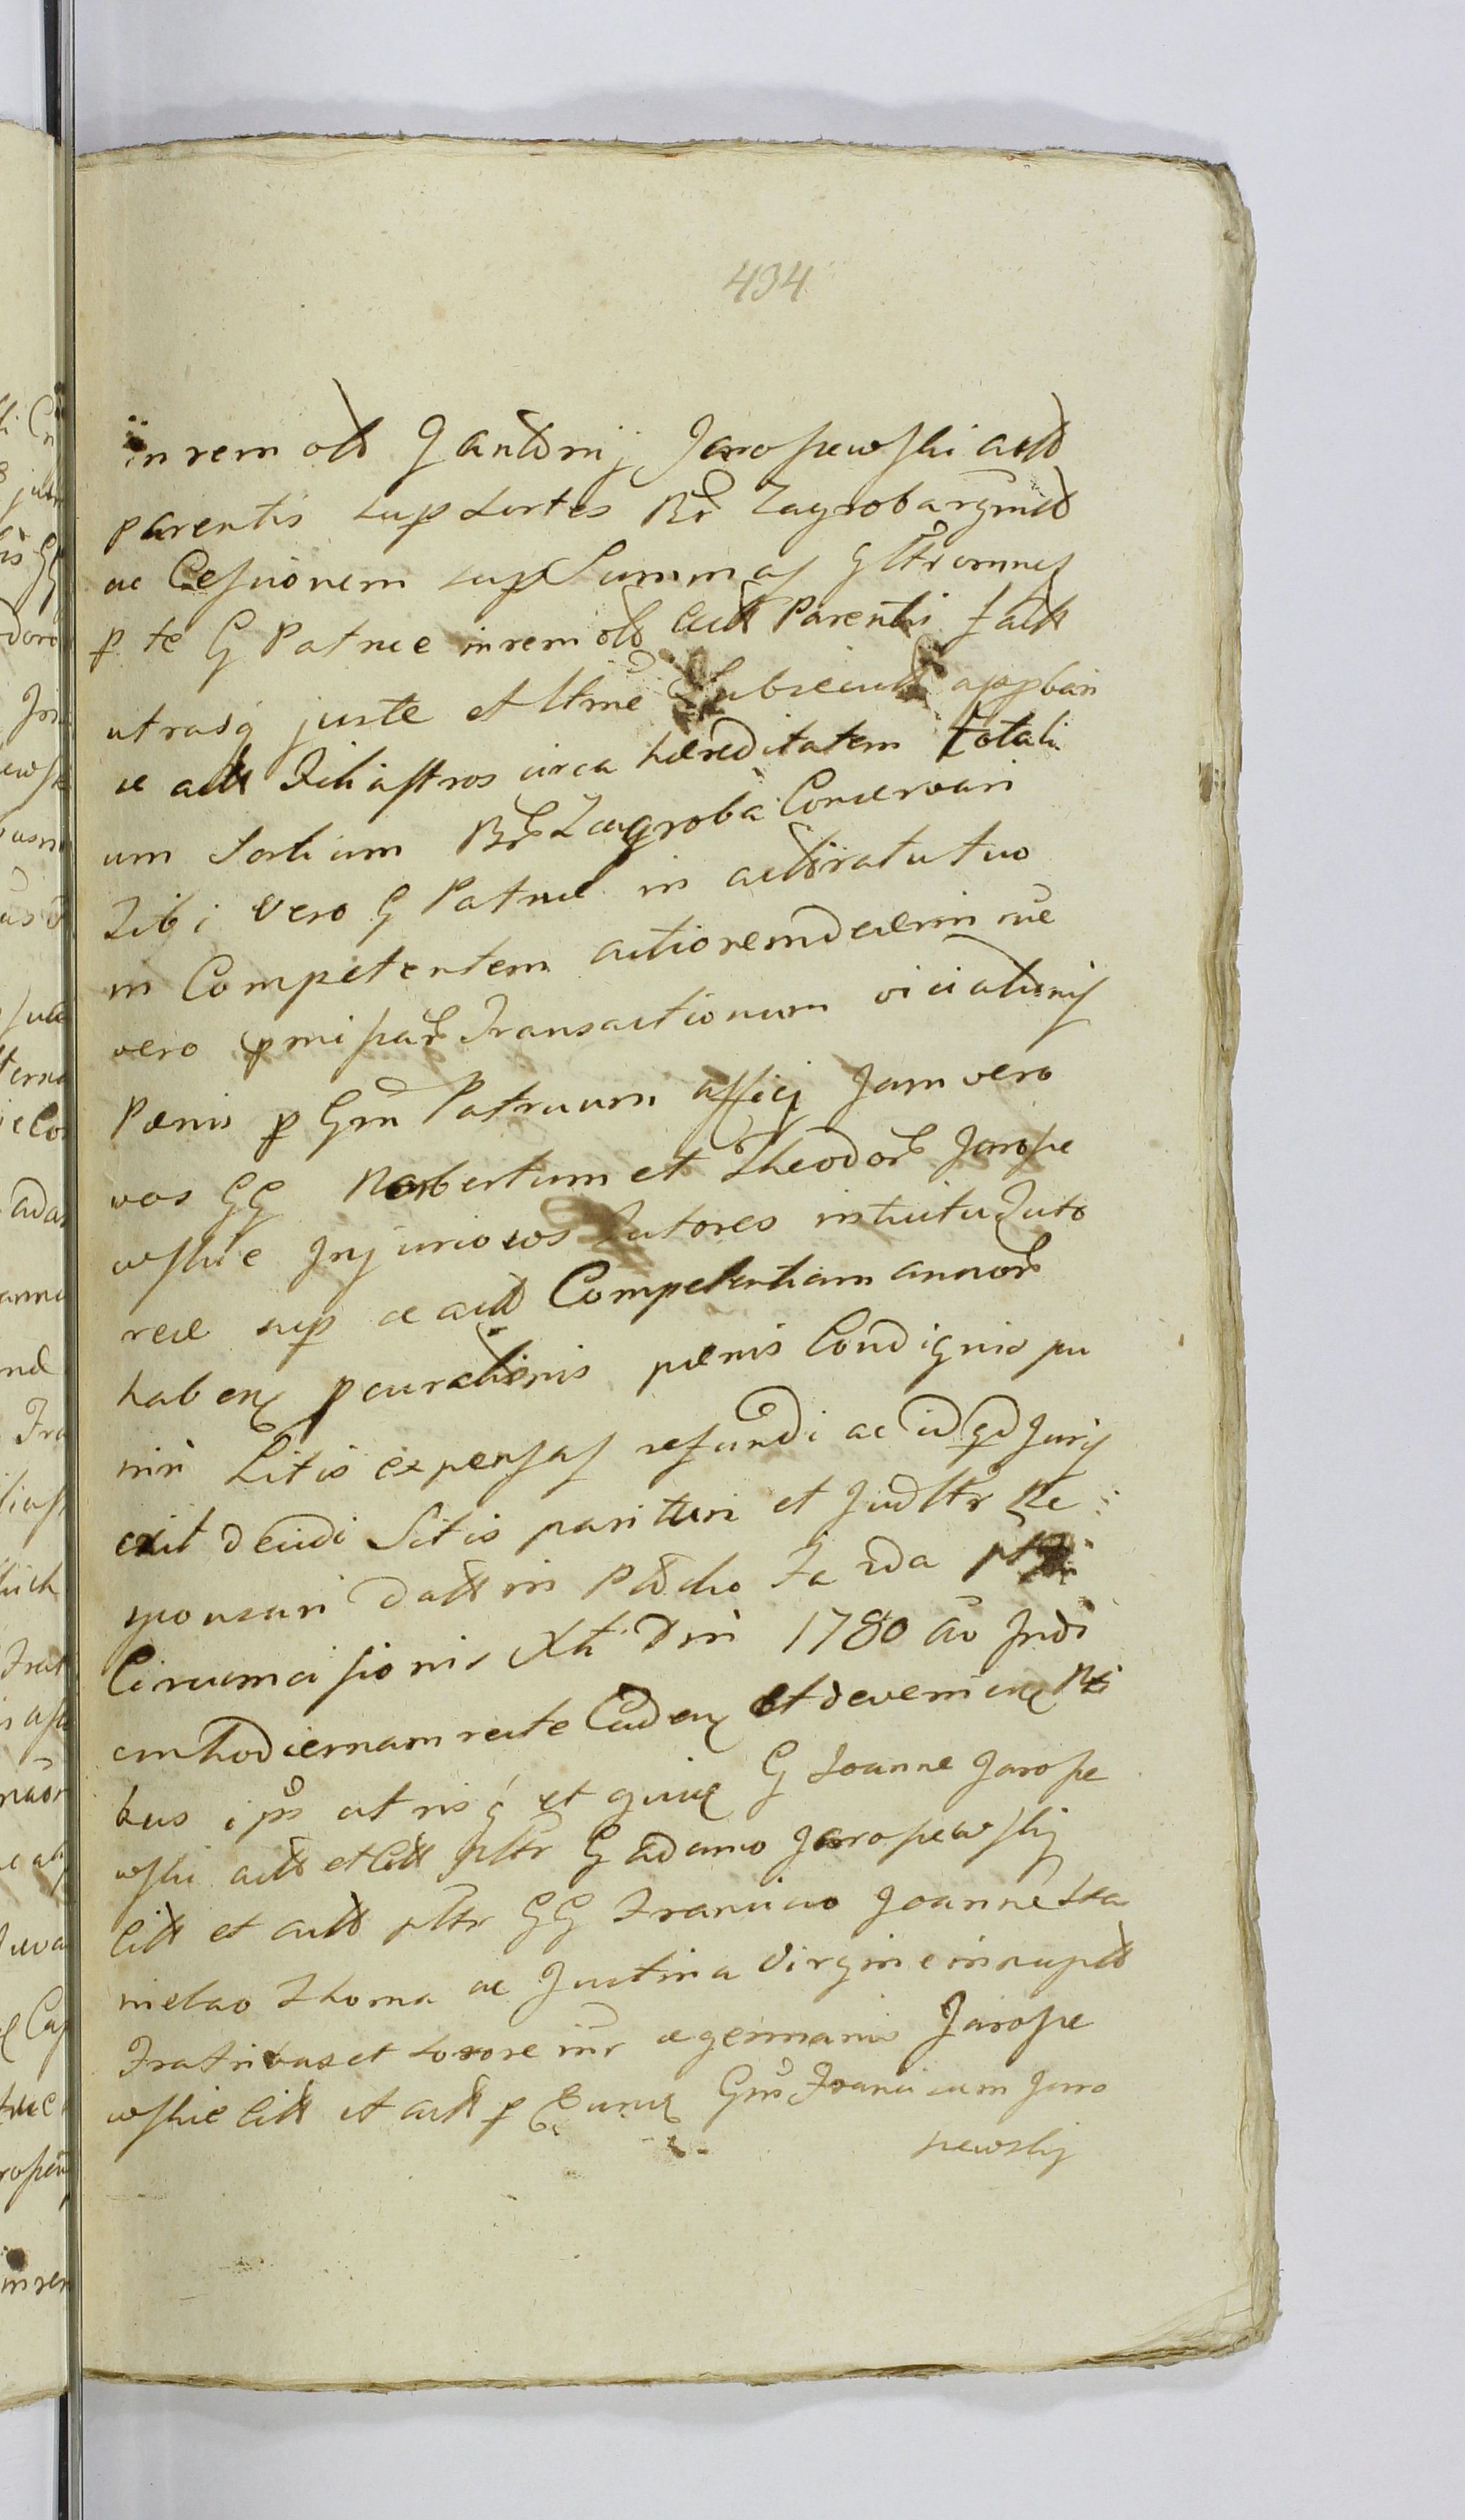 434
in rem olt G antonij Jaroszewski actt
parentis sup Sortes Br Zagroba
ac Cessionem sup Summas omnes
p te G Patrue in rem olt actt Parentis factt
utrasq juste et ltme Subsecutt appbari
ac actt Filiastros circa hæreditatem totali
um Sortium Br Zagroba Conservari
Tibi vero G Patrue in actoratu tuo
in Competentem actionem decerni me
vero Transactionum viciationis
Pænis p Gm Patruum affici Jam vero
vos GG Norbertum et Theodor Jarosze
wskie Injuriosos Tutores intuitu Tuto
reæ sup ac actt Competentiam annor
haben procurationis pænis Condignis pu
niri Litis expensas refundi ac id qd Juris
erit decidi Sitis parituri et Judltr Re
sponsuri Datt in Ptocko Fa 2da
Circumcisionis Xti Dni 1780 ao Indi
em hodiernam recte Caden et devenien Pti
bus ips utrisq et quive G Joanne Jarosze
wski actt et Citt pltr G adamo Jaroszewskij
Citt et actt pltr GG Francisco Joanne Sta
nislao Thoma ac Justina Virgine innuptt
Fratribus et sorore inr se germanis Jarosze
wskie Citt et actt p Eund Gm Franciscum Jaro
szewskij